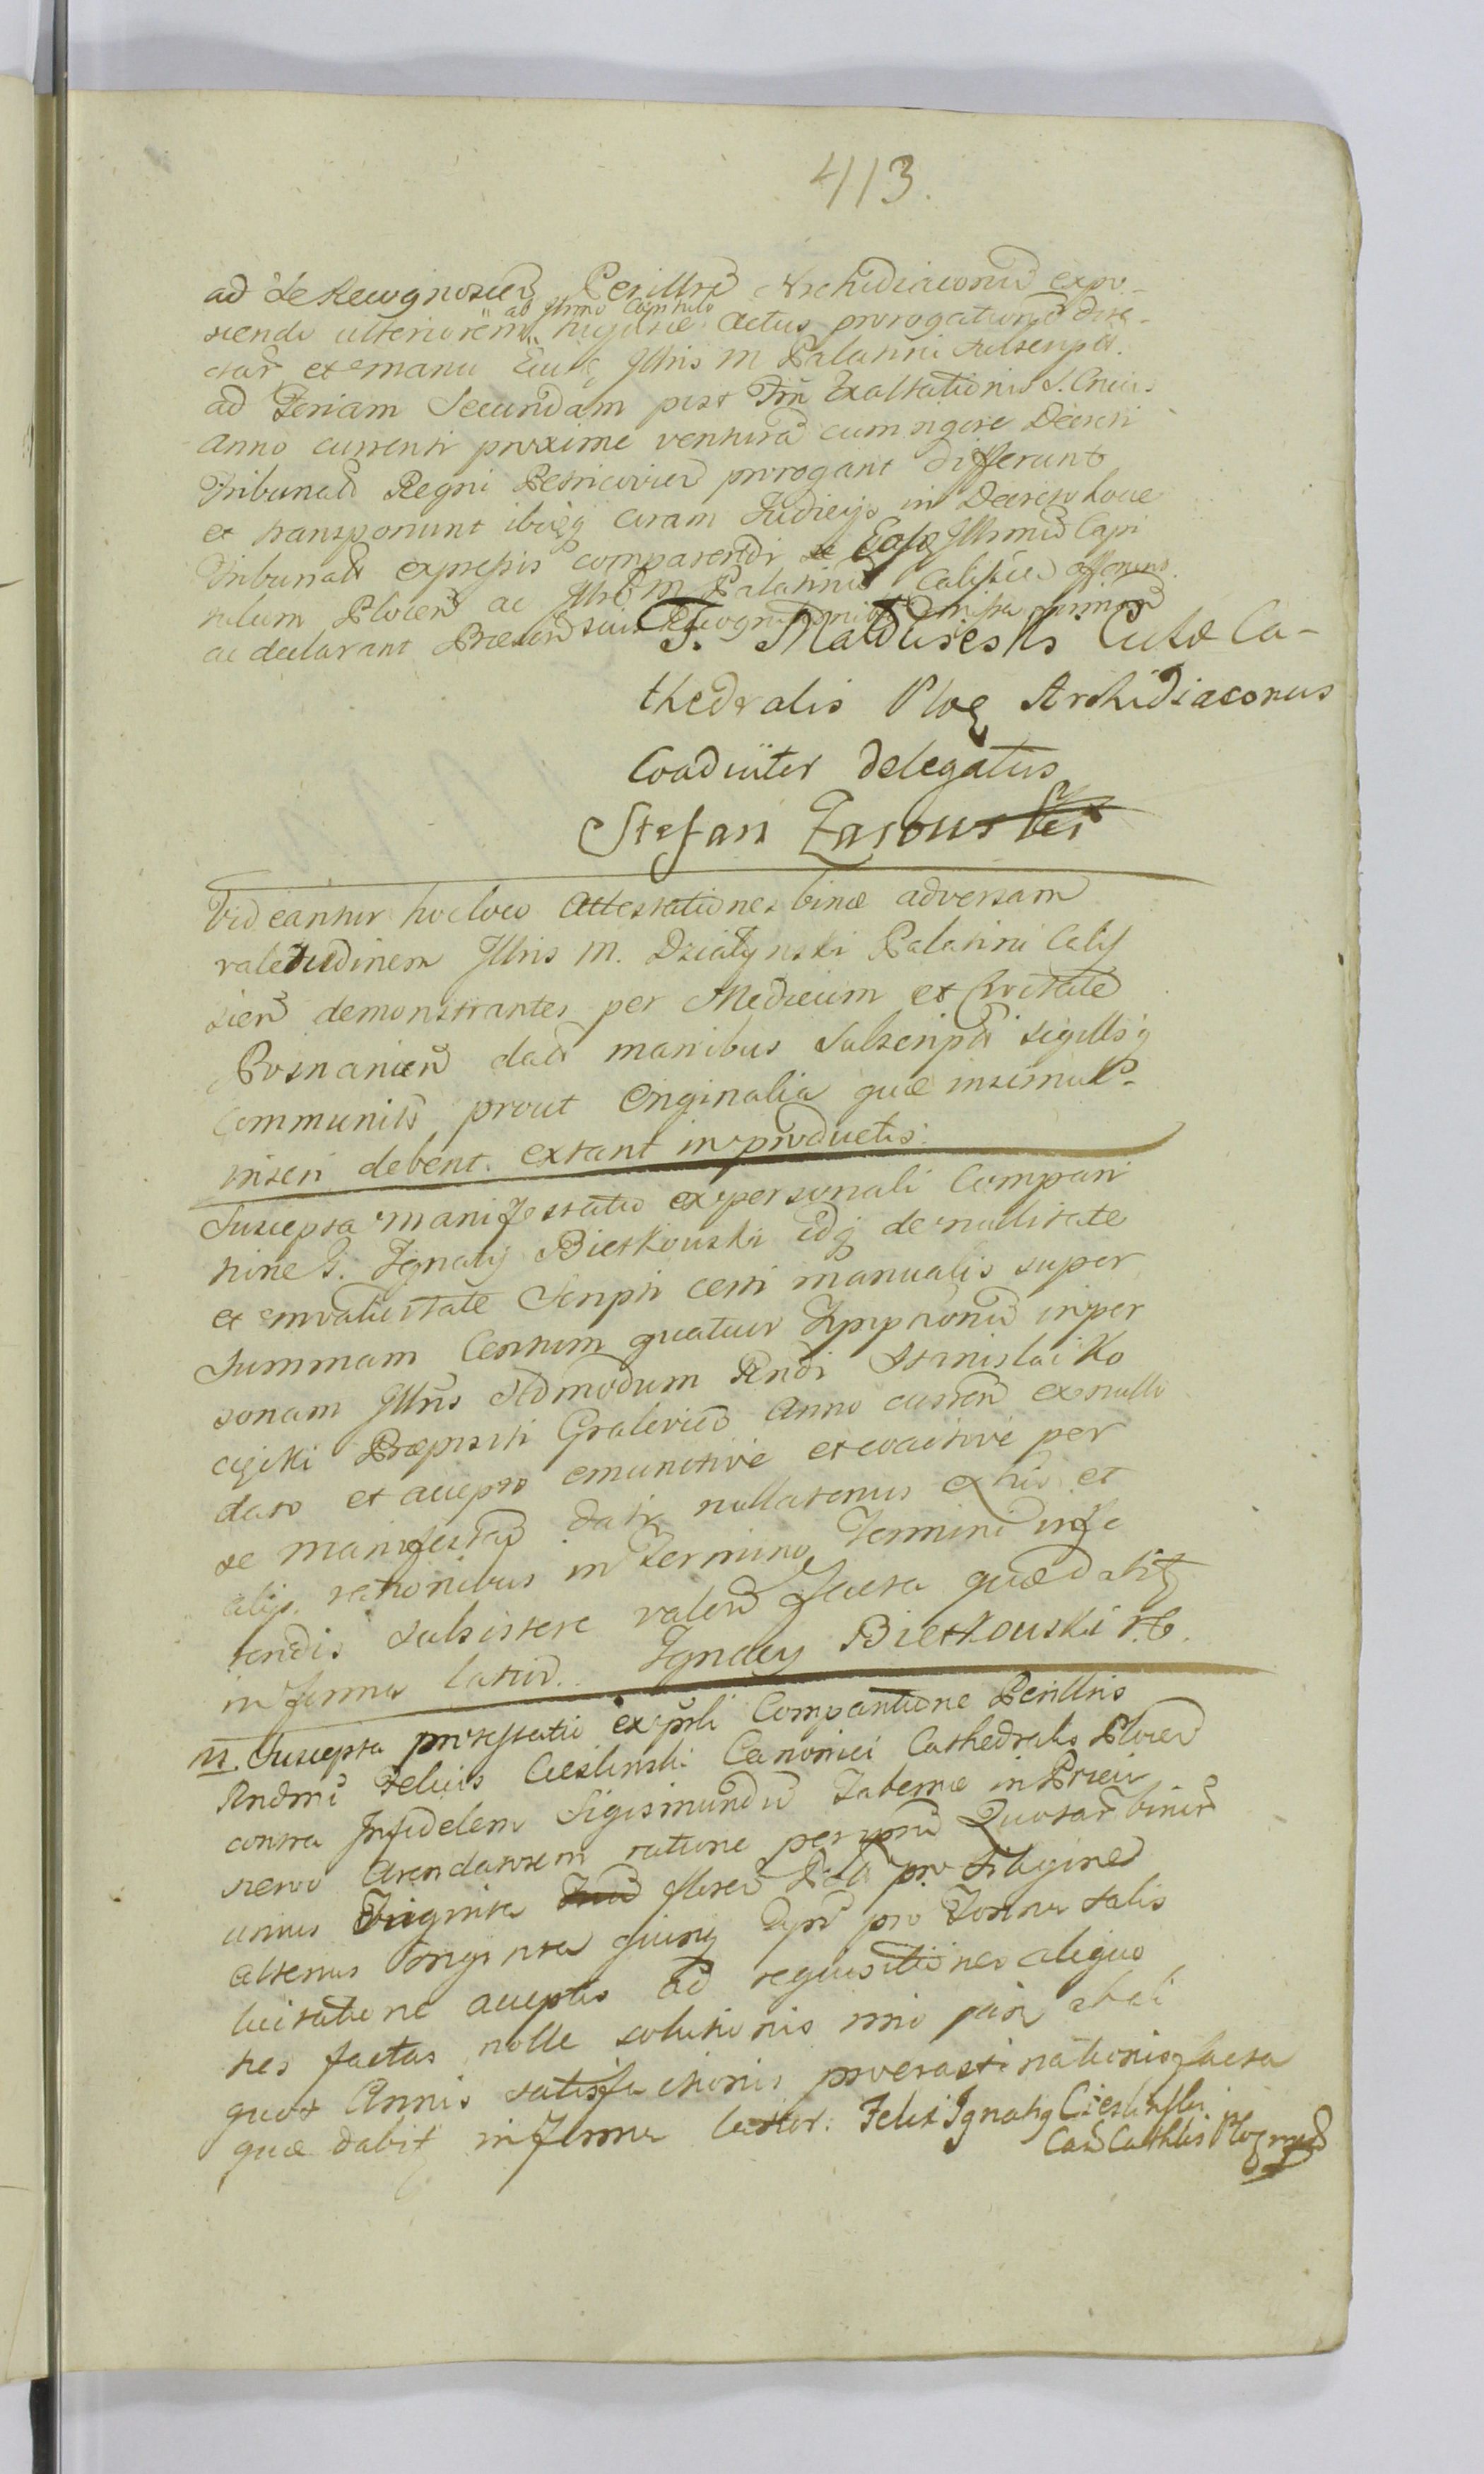 413.
ad se Recognoscen Perillrem Archidiaconum expo-
nendo ulteriorem hujusce Actus prorogationem dire-
ab Illmo Capitulo
ctar et manu Ejusq Illris M Palatini subscript.
ad Feriam Secundam post Fm Exaltationis S. Crucis
anno currenti proxime ventura cum rigore Decreti
Tribunal Regni Petricovien prorogant differunt
et transponunt ibiq coram Judicijs in Decreto hocce
Tribunal expressis comparendi se Illmum Capi
tulum Plocen ac Illrem M Palatinum Calissien offerunt
ac declarant Praesen suis Recognitionibus
F. Maldureski Ca-
thedralis Ploc Archidiaconus
Coadiutor delegatus
Stefan Zarowski
Videantur hocloco Attestationes binæ adversam
valetudinem Illris M. Działynski Palatini Calis
sien demonstrantes per Medicum et Civitate
Posnanien dat manibus subscript sigillisq
communit prout Originalia quæ insimul
inseri debent. extant in productis.
Suscepta manifestatio ex personali Compari
tione G. Ignatij Bietkouski idq de nullitate
et invaliditate Scripti certi manualis super
summam Centum quatuor Imp in per
sonam Illris Admodum Rndi Stanislai Ko
cijski Præpositi Gralevien Anno curren ex nullo
dato et accepto emunctive et coactive per
se manifestan dati nullatenus ex his et
alijs rationibus in Termino Termini infe
rendis subsistere valen facta quæ dabitq
in forma latior. Ignacy Bietkouski
M. Suscepta protestatio ex prsli Comparitione Perillris
Rndmi Felicis Cieslinski Canonici Cathedralis Plocen
contra Infidelem Sigismundum Tabernæ in
Arendatorem ratione Quotar binar
unius Triginta floren Pol pro Siligine
alterius Triginta quinq pro Tonna salis
licitatione acceptis ad requisitiones aliquo
ties factas nolle solutionis imo ab ali
quot Annis satisfactionis procrastinationis facta
quæ dabit in forma latior. Felix Ignaty Cieslinski
Can Cathlis Ploc